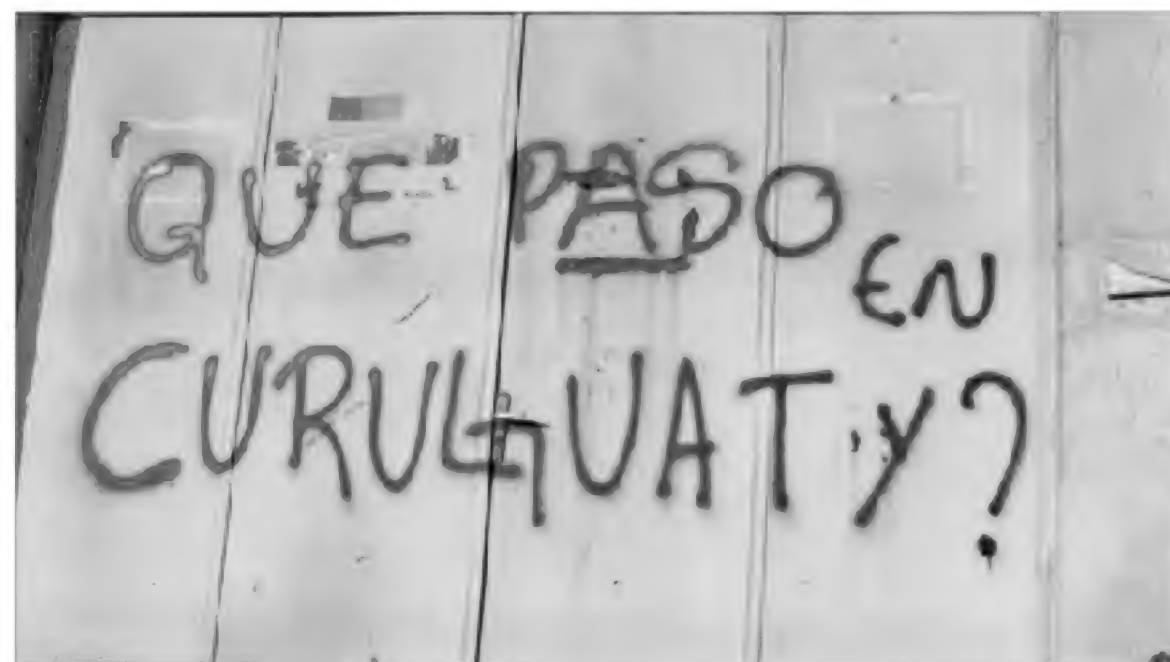 QUE PASO EN
CURUGUATY?